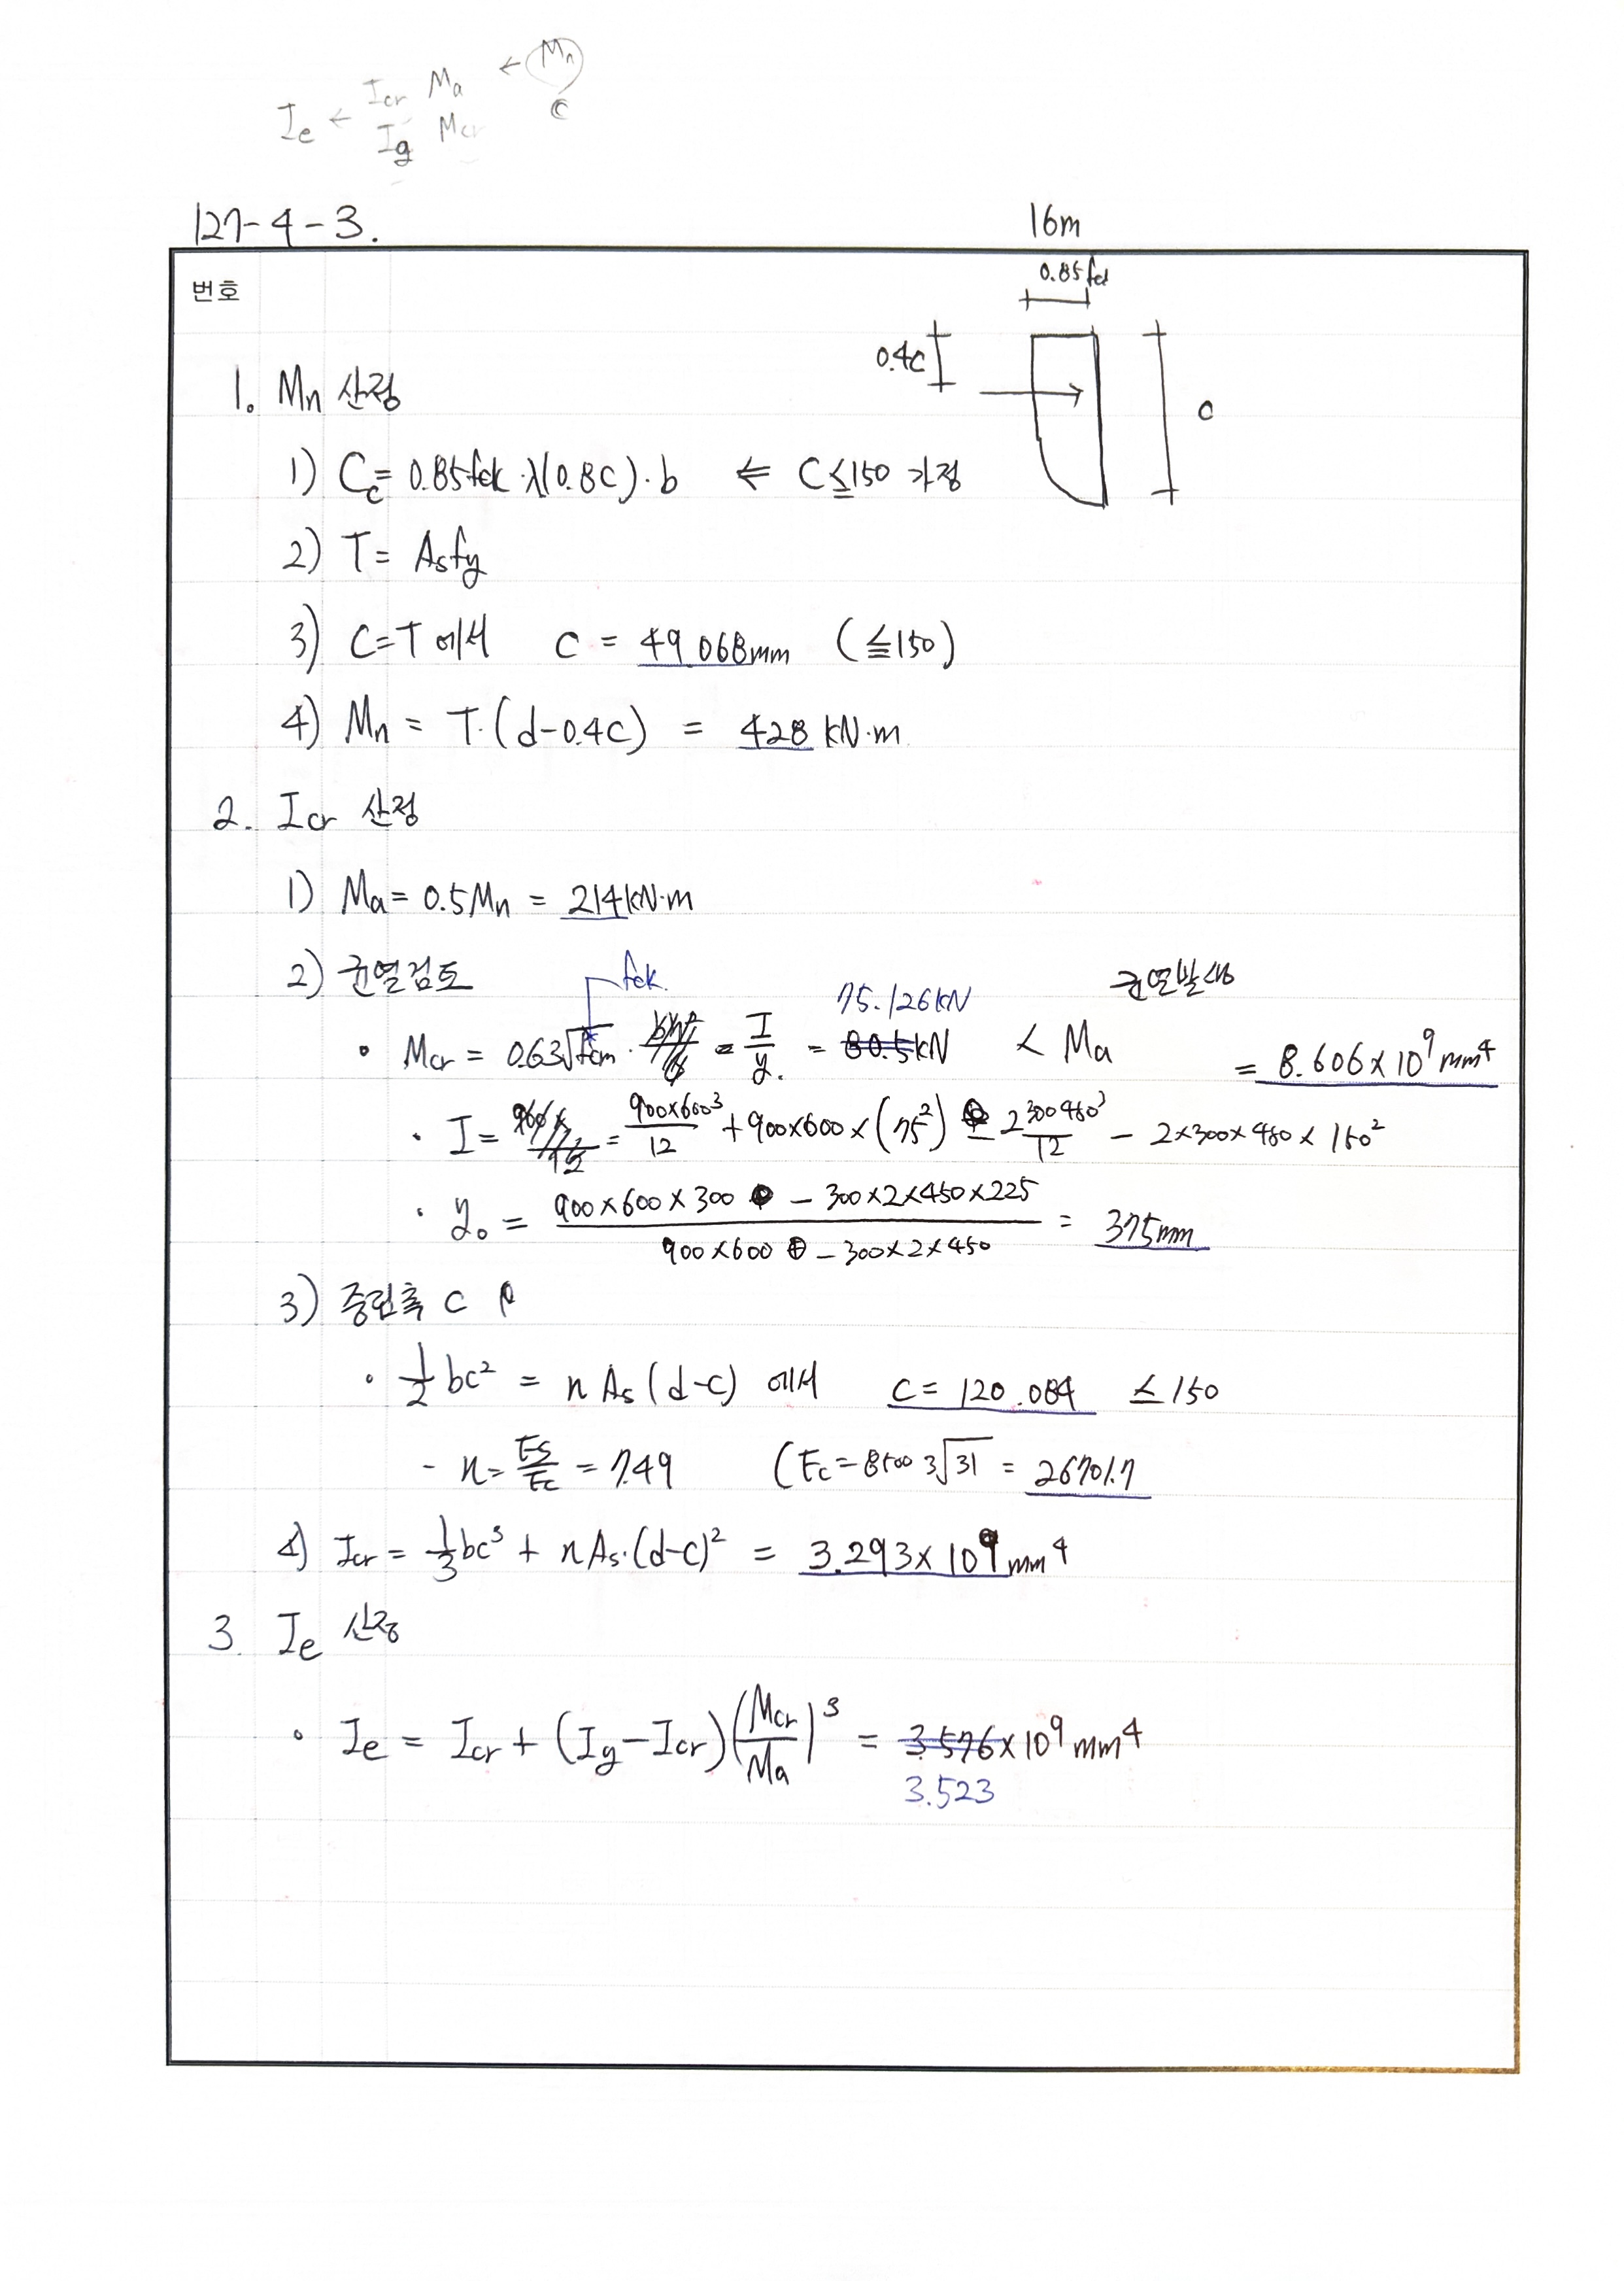 Ie ← Icr Ma ← Mn
Ig Mcr c
127-4-3. 16m
번호
0.85fck
0.4c
c
1. Mn 산정
1) Cc = 0.85fck·λ(0.8c)·b ⇐ C≦150 가정
2) T = Asfy
3) C=T 에서 c = 49.068mm (≦150)
4) Mn = T·(d-0.4c) = 428 kN·m
2. Icr 산정
1) Ma = 0.5Mn = 214kN·m
2) 균열검토
fck.
75.126kN 균열발생
• Mcr = 0.63√fcm · bh²/6 = I/y. = 80.5kN < Ma
= 8.606×10⁹mm⁴
· I = = 900×600³/12 + 900×600×(75²) - 2 300 450³/12 - 2×300×450×150²
· y₀ = (900×600×300 - 300×2×450×225)/(900×600 - 300×2×450) = 375mm
3) 중립축 c
· ½bc² = nAs(d-c) 에서 c = 120.084 ≤150
- n = Es/Ec = 7.49 (Ec = 8500 ³√31 = 26701.7
4) Icr = ⅓bc³ + nAs·(d-c)² = 3.293×10⁹mm⁴
3. Ie 산정
• Ie = Icr + (Ig-Icr)(Mcr/Ma)³ = 3.576×10⁹mm⁴
3.523